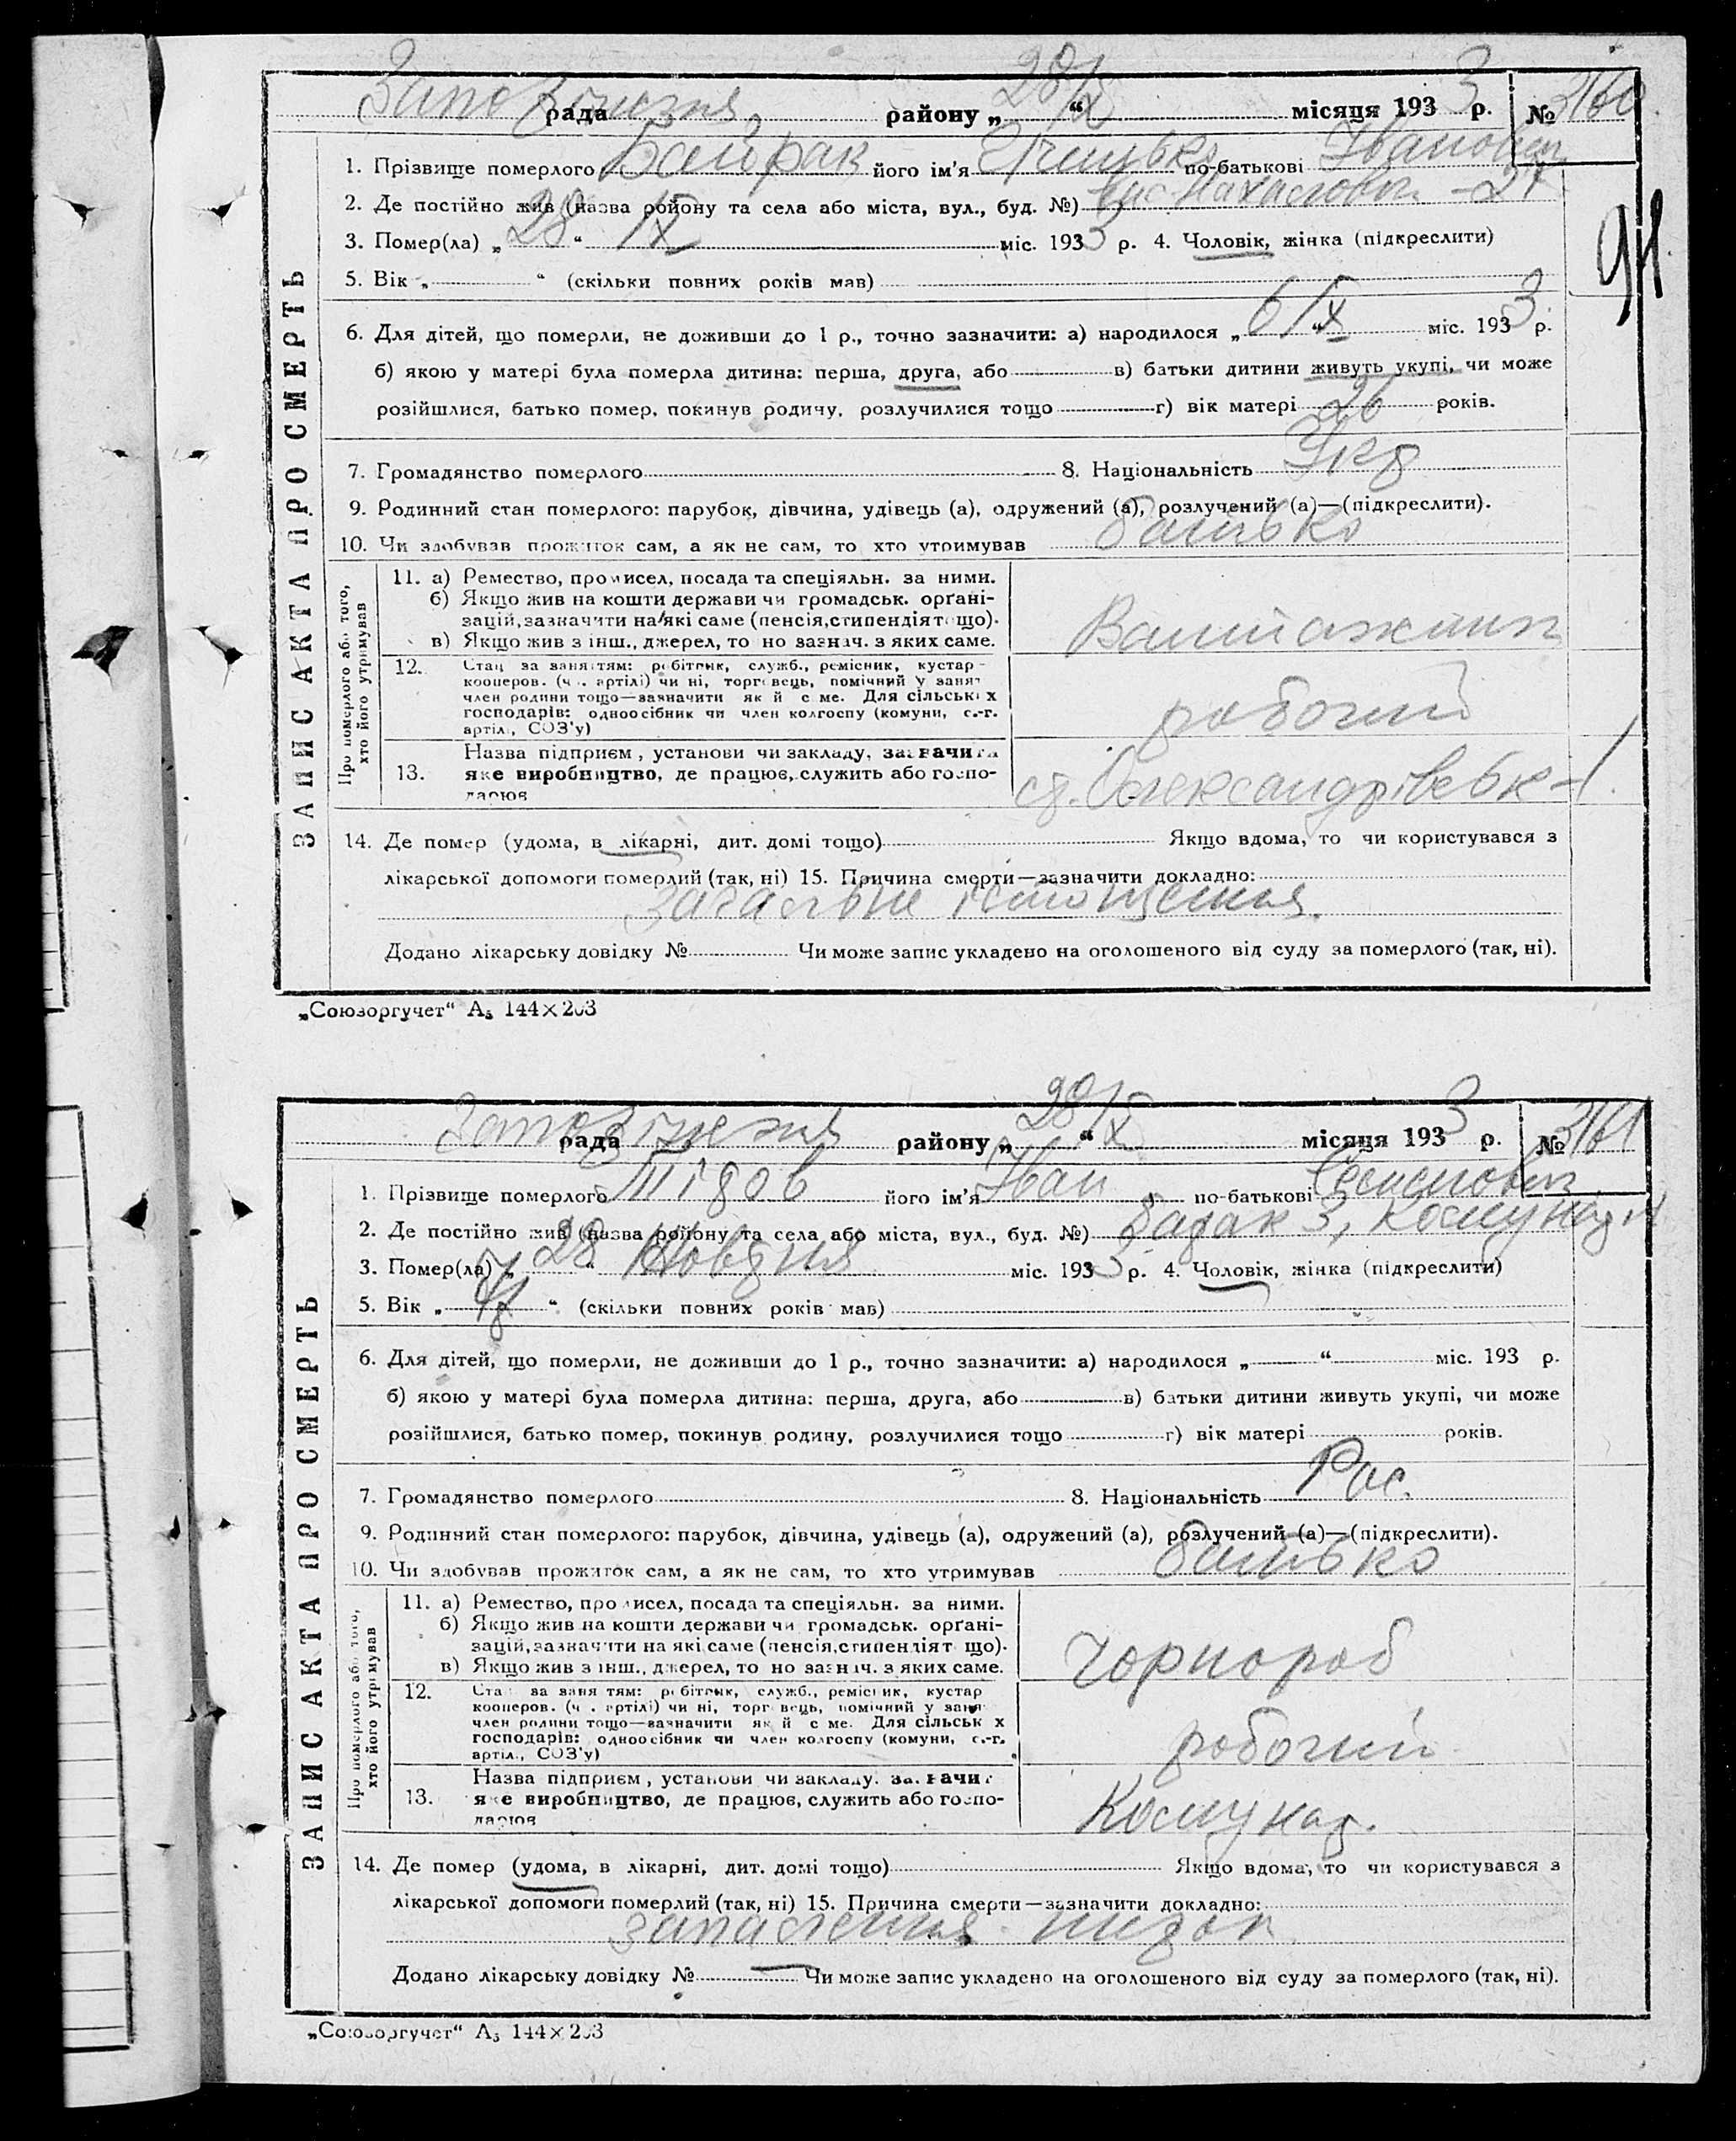 Запоріжжя рада району „28/X“ місяця 1933 р. № 3160
91
ЗАПИС АКТА ПРО СМЕРТЬ
1. Прізвище померлого Байрак його ім'я Грицько по-батькові Іванович
2. Де постійно жив (назва ройону та села або міста, вул., буд. №)
3. Помер(ла) „28“ IX міс. 1933 р. 4. Чоловік, жінка (підкреслити)
5. Вік „ “ (скільки повних років мав)
6. Для дітей, що померли, не доживши до 1 р., точно зазначити: а) народилося „6/IX“ міс. 1933 р.
б) якою у матері була померла дитина: перша, друга, або в) батьки дитини живуть укупі, чи може
розійшлися, батько помер, покинув родичу, розлучилися тощо г) вік матері 26 років.
7. Громадянство померлого 8. Національність Укр
9. Родинний стан померлого: парубок, дівчина, удівець (а), одружений (а), розлучений (а)—(підкреслити).
10. Чи здобував прожиток сам, а як не сам, то хто утримував батько
Про померлого або того, хто його утримував
11. а) Ремество, промисел, посада та спеціяльн. за ними.
б) Якщо жив на кошти держави чи громадськ. орґані-
зацій, зазначити на які саме (пенсія, стипендія тощо).
в) Якщо жив з інш., джерел, то но зазнач. з яких саме.
Вантажник
12. Стан за заняттям: робітник, служб., ремісник, кустар
кооперов. (чл. артілі) чи ні, торговець, помічний у занят
член родини тощо—зазначити як й саме. Для сільських
господарів: одноосібник чи член колгоспу (комуни, с.-г.
артіл., СОЗ'у)
робочий
13. Назва підприєм, установи чи закладу, зазначити
яке виробництво, де працює, служить або госпо-
дарює
ст. Олександрівськ-1.
14. Де помер (удома, в лікарні, дит. домі тощо) Якщо вдома, то чи користувався з
лікарської допомоги померлий (так, ні) 15. Причина смерти—зазначити докладно:
загальне істощення.
Додано лікарську довідку № Чи може запис укладено на оголошеного від суду за померлого (так, ні).
„Союзоргучет“ А5 144×203
Запоріжжя рада району „28/X“ місяця 1933 р. № 3161
ЗАПИС АКТА ПРО СМЕРТЬ
1. Прізвище померлого Тітов його ім'я Іван по-батькові Семенович
2. Де постійно жив (назва ройону та села або міста, вул., буд. №) барак 3, Комунар
3. Помер(ла) „28“ Жовтня міс. 1933 р. 4. Чоловік, жінка (підкреслити)
5. Вік „ “ (скільки повних років мав)
6. Для дітей, що померли, не доживши до 1 р., точно зазначити: а) народилося „ “ міс. 193 р.
б) якою у матері була померла дитина: перша, друга, або в) батьки дитини живуть укупі, чи може
розійшлися, батько помер, покинув родину, розлучилися тощо г) вік матері років.
7. Громадянство померлого 8. Національність Рос.
9. Родинний стан померлого: парубок, дівчина, удівець (а), одружений (а), розлучений (а)—(підкреслити).
10. Чи здобував прожиток сам, а як не сам, то хто утримував батько
Про померлого або того, хто його утримував
11. а) Ремество, промисел, посада та спеціяльн. за ними.
б) Якщо жив на кошти держави чи громадськ. орґані-
зацій, зазначити на які саме (пенсія, стипендія т що).
в) Якщо жив з інш., джерел, то но зазнач. з яких саме.
Чорнороб
12. Стан за заняттям: робітник, служб., ремісник, кустар
кооперов. (чл. артілі) чи ні, торговець, помічний у занят
член родини тощо—зазначити як й саме. Для сільськ х
господарів: одноосібник чи член колгоспу (комуни, с.-г.
артіл., СОЗ'у)
робочий
13. Назва підприєм, установи чи закладу, зазначи
яке виробництво, де працює, служить або госпо-
дарює
Комунар.
14. Де помер (удома, в лікарні, дит. домі тощо) Якщо вдома, то чи користувався з
лікарської допомоги померлий (так, ні) 15. Причина смерти—зазначити докладно:
запалення нирок
Додано лікарську довідку № Чи може запис укладено на оголошеного від суду за померлого (так, ні).
„Союзоргучет“ А5 144×203